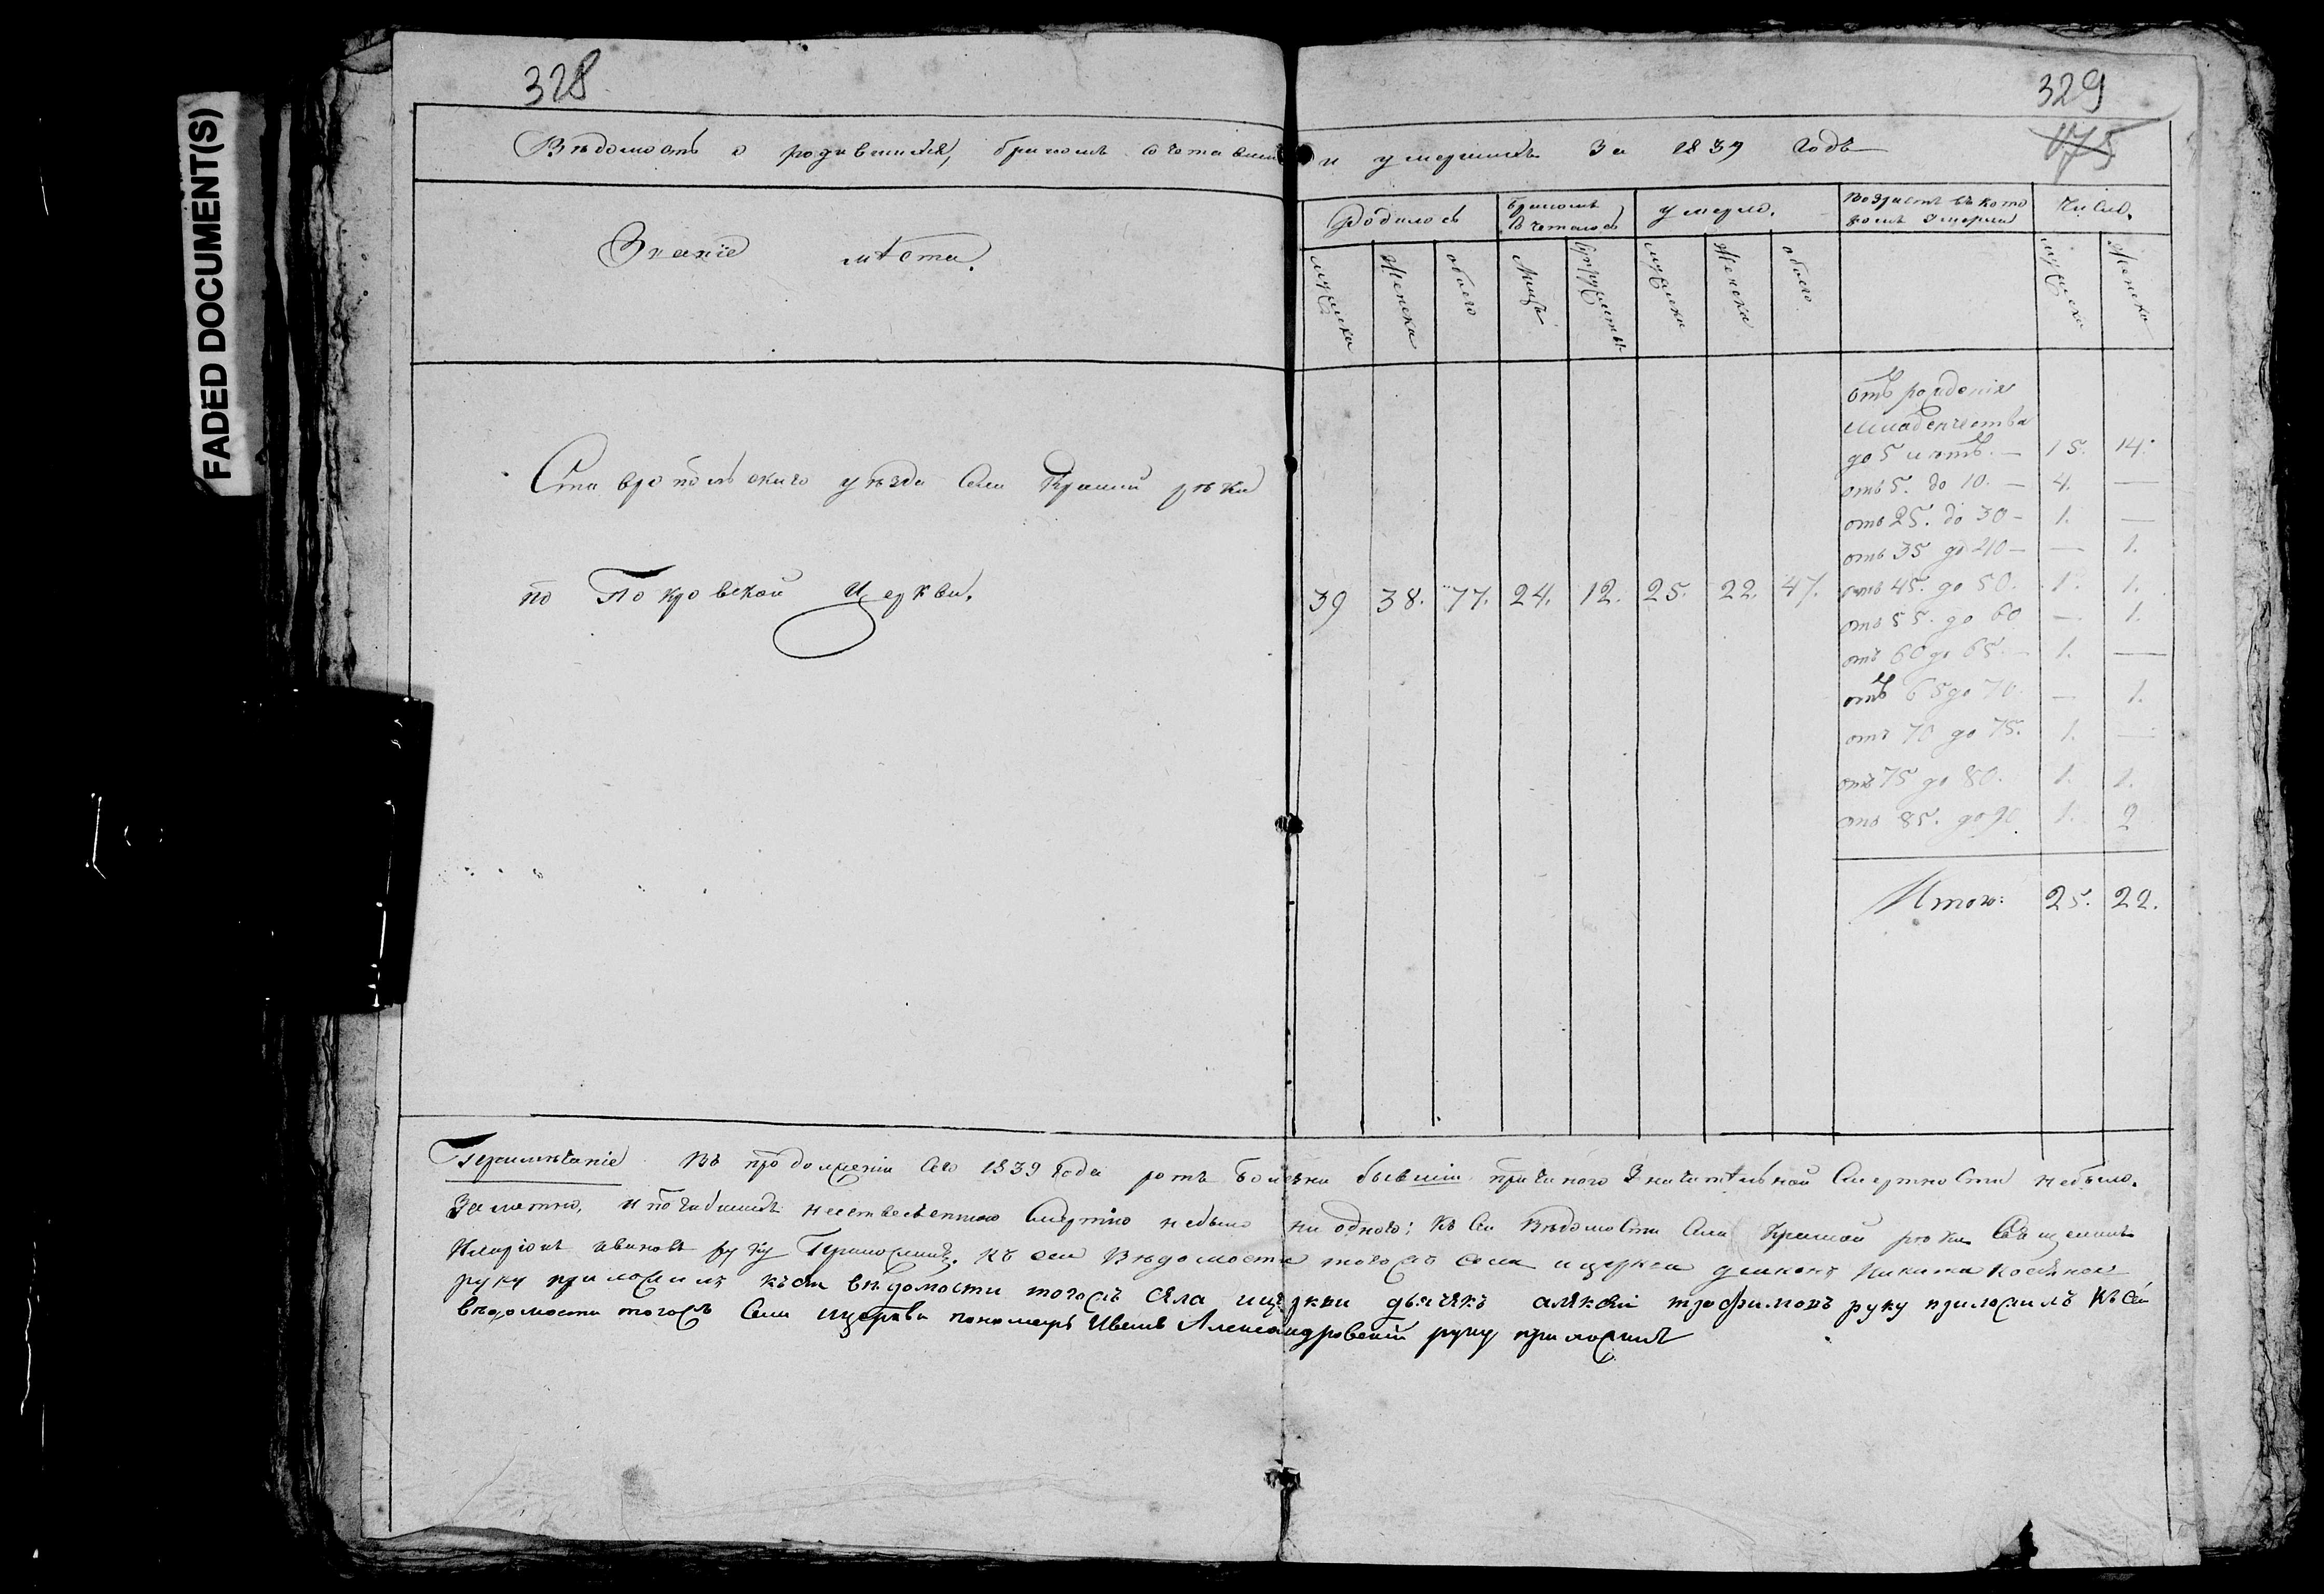 FADED DOCUMENT(S)
328
329
175
Вѣдомость о родившихся, бракомъ сочетавши и умершихъ За 1839 Годъ
Званіе мѣста.
Родилось
бракомъ сочеталось
умерло.
Возрастъ въ которомъ умерли
Число.
мужеска
Женска
обоего
Лицъ
супружествъ
мужеска
Женска
обоего
мужеска
Женска
отъ рожденія
младенчества
до 5 лѣтъ. — 15. 14.
отъ 5. до 10. — 4. —
отъ 25. до 30 - 1. —
отъ 35 до 40 — — 1.
Ставропольскаго уѣзда села рѣки
по Покровской Церкви.
39 38. 77. 24. 12. 25. 22. 47.
отъ 45. до 50. 1. 1.
отъ 55. до 60 — 1.
отъ 60 до 65. — 1. —
отъ 65 до 70. — 1.
отъ 70 до 75. 1. —
отъ 75 до 80. 1. 1.
отъ 85. до 90. 1. 2
Итого: 25. 22.
Примѣчаніе Въ продолженіи сего 1839 Года болѣзни бывшій причиною Значительной Смертности небыло.
Заметно, и погибшихъ неестественною Смертію небыло ни одного: Къ сей Вѣдомости села рѣки Священникъ
Иларіонъ Ивановъ руку Приложилъ. къ сей Вѣдомости тогожъ села и церкви діаконъ Никита
руку приложилъ къ сей вѣдомости тогожъ села и церкви дьячекъ алѣксѣй трофимовъ руку приложилъ Къ сей
вѣдомости тогожъ Села и церкви пономарь Иванъ Александровскій руку приложилъ